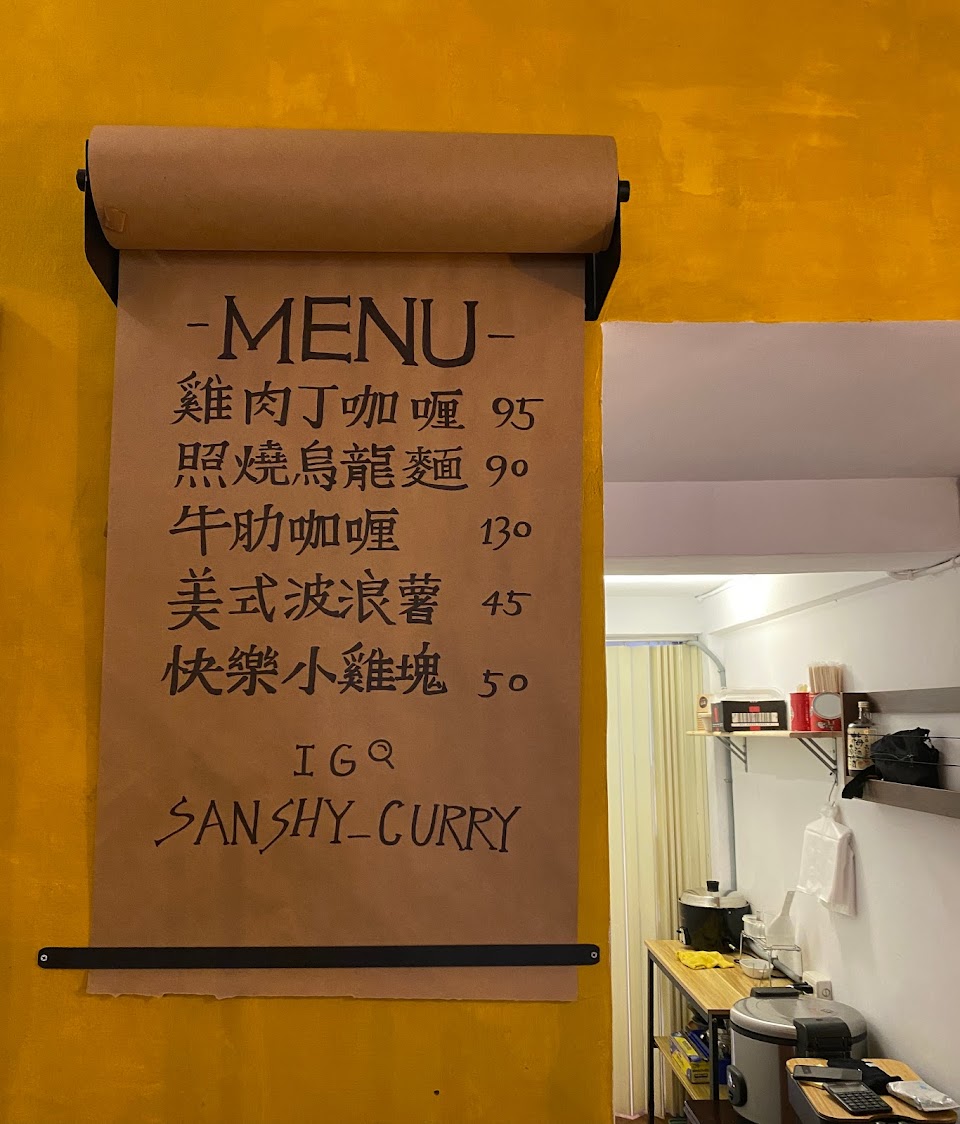 -MENU-
雞肉丁咖喱 95
照燒烏龍麵 90
牛肋咖喱 130
美式波浪薯 45
快樂小雞塊 50
IG
SANSHY_CURRY